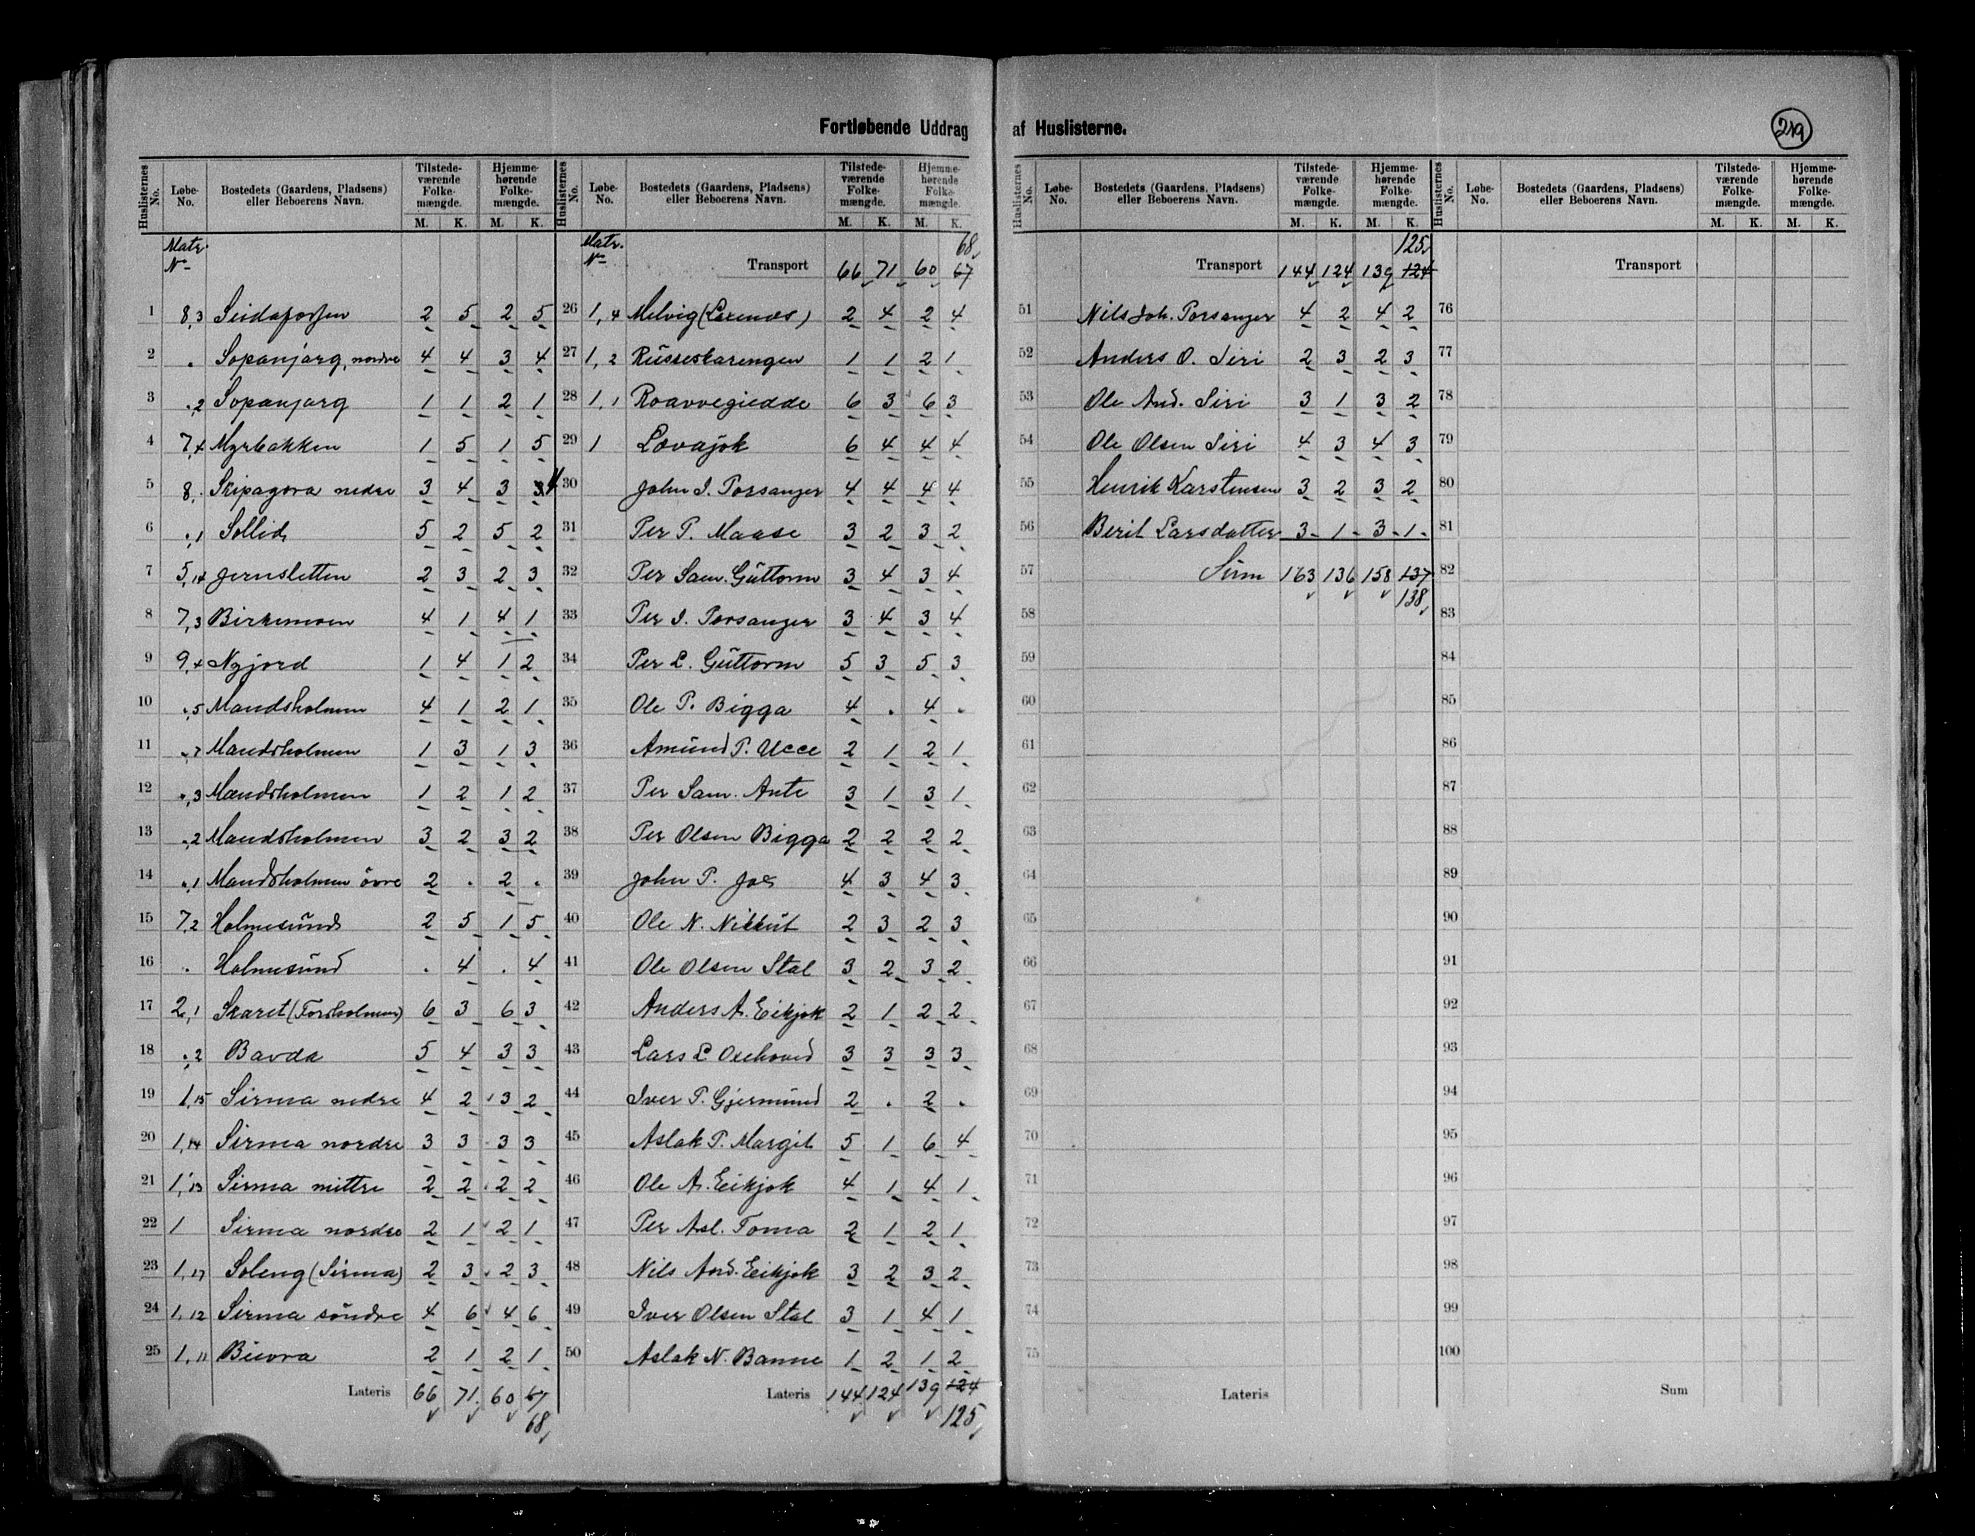 Fortløbende Uddrag af Huslisterne.
219
Huslisternes No. Løbe-No. Bostedets (Gaardens, Pladsens) eller Beboerens Navn. Tilstedeværende Folkemængde. M. K. Hjemmehørende Folkemængde. M. K.
Matr. No
1 8,3 Seidaforsen 2 5 2 5
2 " Sopanjarg, nordre 4 4 3 4
3 ",2 Sopanjarg 1 1 2 1
4 7,4 Myrbakken 1 5 1 5
5 8," Skipagora nedre 3 4 3 3 4
6 ",1 Sollid 5 2 5 2
7 5,14 Jernsletten 2 3 2 3
8 7,3 Birkemoen 4 1 4 1
9 9,4 Nyjord 1 4 1 2
10 ",5 Mandsholmen 4 1 2 1
11 ",7 Mandsholmen 1 3 1 3
12 ",3 Mandsholmen 1 2 1 2
13 ",2 Mandsholmen 3 2 3 2
14 ",1 Mandsholmen övre 2 . 2 .
15 7,2 Holmesund 2 5 1 5
16 " Holmesund . 4 . 4
17 2,1 Skaret (Forsholmen) 6 3 6 3
18 ",2 Bavda 5 4 3 3
19 1,15 Sirma nedre 4 2 3 2
20 1,14 Sirma nordre 3 3 3 3
21 1,13 Sirma mittre 2 2 2 2
22 1 Sirma nordre 2 1 2 1
23 1,17 Soleng (Sirma) 2 3 2 3
24 1,12 Sirma söndre 4 6 4 6
25 1,11 Buvra 2 1 2 1
Lateris 66 71 60 67
68
Huslisternes No. Løbe-No. Bostedets (Gaardens, Pladsens) eller Beboerens Navn. Tilstedeværende Folkemængde. M. K. Hjemmehørende Folkemængde. M. K.
68
Matr. No Transport 66 71 60 67
26 1,4 Melvig (Laxenæs) 2 4 2 4
27 1,2 Russeskarengen 1 1 2 1
28 1,1 Roavvegiedde 6 3 6 3
29 1 Lævajok 6 4 4 4
30 John I. Porsanger 4 4 4 4
31 Per P. Maase 3 2 3 2
32 Per Sam. Guttorm 3 4 3 4
33 Per I. Porsanger 3 4 3 4
34 Per L. Guttorm 5 3 5 3
35 Ole P. Bigga 4 . 4 .
36 Amund P. Ucce 2 1 2 1
37 Per Sam. Ante 3 1 3 1
38 Per Olsen Bigga 2 2 2 2
39 John P. Joks 4 3 4 3
40 Ole N. Nikkut 2 3 2 3
41 Ole Olsen Stal 3 2 3 2
42 Anders A. Eikjok 2 1 2 2
43 Lars L. Oxehoved 3 3 3 3
44 Iver P. Gjermund 2 . 2 .
45 Aslak P. Margit 5 1 6 4
46 Ole A. Eikjok 4 1 4 1
47 Per Asl. Toma 2 1 2 1
48 Nils And. Eikjok 3 2 3 2
49 Iver Olsen Stal 3 1 4 1
50 Aslak N. Banne 1 2 1 2
Lateris 144 124 139 124
125
Huslisternes No. Løbe-No. Bostedets (Gaardens, Pladsens) eller Beboerens Navn. Tilstedeværende Folkemængde. M. K. Hjemmehørende Folkemængde. M. K.
125
Transport 144 124 139 124
51 Nils Joh. Porsanger 4 2 4 2
52 Anders O. Siri 2 3 2 3
53 Ole And. Siri 3 1 3 2
54 Ole Olsen Siri 4 3 4 3
55 Henrik Karstensen 3 2 3 2
56 Berit Larsdatter 3 1 3 1
57 Sum 163 136 158 137
138
58
59
60
61
62
63
64
65
66
67
68
69
70
71
72
73
74
75
Lateris
Huslisternes No. Løbe-No. Bostedets (Gaardens, Pladsens) eller Beboerens Navn. Tilstedeværende Folkemængde. M. K. Hjemmehørende Folkemængde. M. K.
Transport
76
77
78
79
80
81
82
83
84
85
86
87
88
89
90
91
92
93
94
95
96
97
98
99
100
Sum